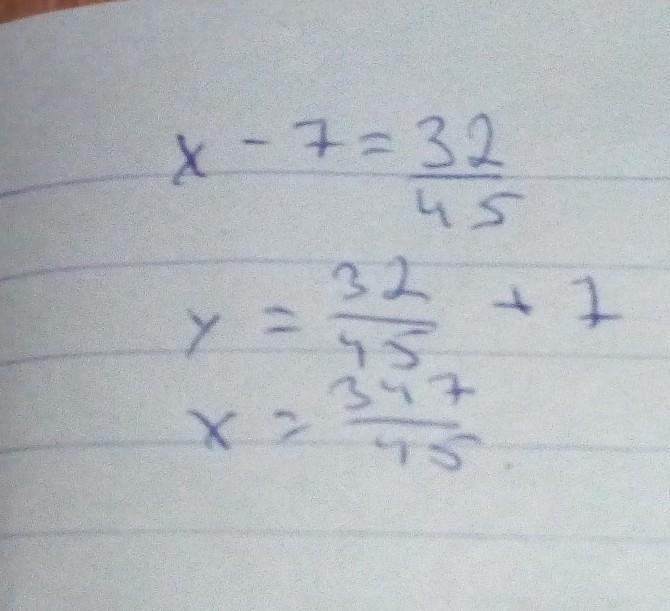 x - 7 = 32/45
x = 32/45 + 7
x = 347/45